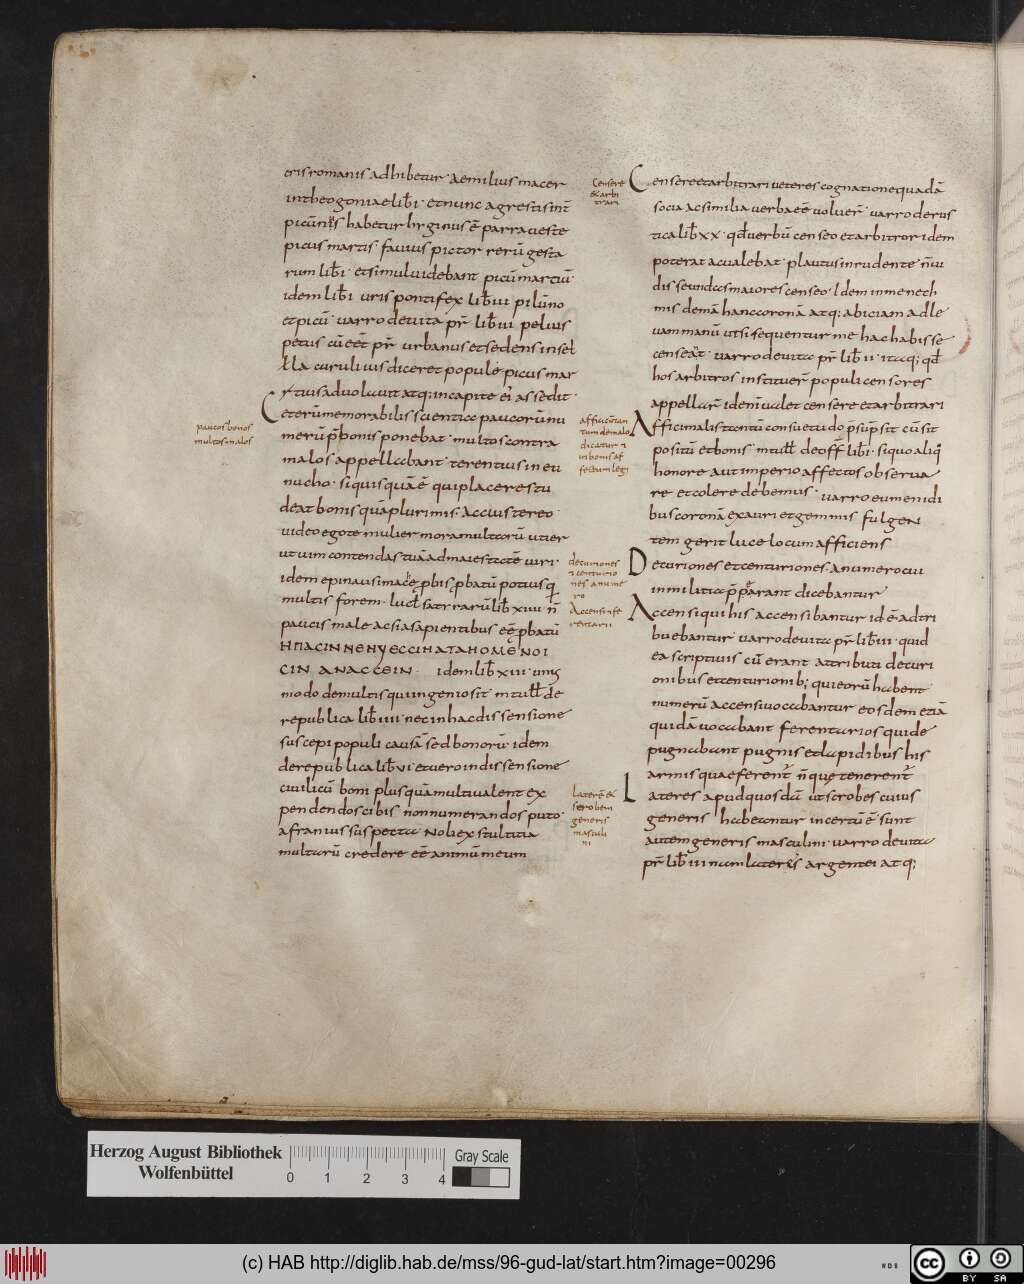 cris romanis adhibetur · aemilius macer
in theogoniae lib̄ i · et nunc agrestis int̄
picūnus habetur hyginus ē parra ueste
picus martis fauius pictor rerū gesta
rum lib̄ i · et simul uidebant picū martiū·
idem lib̄ i uris pontifex lib̄ iii pilūno
et picū · uarro de uita pr̄ lib̄ iii pelius
petus cū eēt pr̄ urbanus et sedens in sel
lla curuli uis diceret popule picus mar
tius aduolauit atq; in capite ei assedit·
Ceterū memorabilis scientice paucorū nu
merū p̄ bonis ponebat · multos contra
malos appellabant · terentius in eu
nucho · si quisquā ē qui placere stu
deat bonis quā plurimis · accius tereo ·
uideo ego te mulier more multarū utier
ut uim contendas tuā ad maiestatē uiri ·
multis forem · lucł satyrarū lib̄ xxvi n̄
paucis male ac si a sapientibus eē p̄batū
CIN ANACCEIN · idem lib̄ xiii unis
modo de multis qui ingenio sit · m tull̄ de
republica lib̄ iiii · nec in hac dissensione
suscepi populi causā sed bonorū · idem
de republica lib̄ vi · et uero in dissensione
ciuilicū boni plus quā multi ualent ex
pendendos cibis non numerandos puto ·
afranius suspecta · nolo ex stultitia
multarū credere eē animū meum
paucos bonos
multos malos
Censere
& arbi
trari
Censere et arbitrari ueteres cognatione quadā
socia ac similia uerba eē uoluer̄ · uarro de rus
tica lib̄ xx · qd̄ uerbū censeo et arbitror idem
poterat ac ualebat · plautus in rudente n̄ ui
disse undas maiores censeo · Idem in menech
mis demā hanc coronā atq; abiciam ad le
uam manū ut si sequentur me hac habisse
censeāt · uarro de uita pr̄ lib̄ ii · itaq; qd̄
hos arbitros instituer̄ populi censores
appellar̄ idem ualet censere et arbitrari
Affici malis tantū consuetudo p̄sūpsit cū sit
positū et bonis · m tull̄ de off̄ lib̄ i · si quo aliq̄
honore aut imperio affectos obserua
re et colere debemus · uarro eumenidi
bus coronā ex auri et gemmis fulgen
tem gerit luce locum afficiens
Decuriones et centuriones · a numero cui
in militia p̄p̄arant dicebantur
Accensi qui his accensibantur id ē adtri
buebantur uarro de uita pr̄ lib̄ iii · quid
ea scriptiuis cū erant attributi decuri
onibus et centurionib; qui eorū habent
numerū accensi uocabantur eosdem etiā
quidā uocabant ferentarios qui de
pugnabant pugnis et lapidibus his
armis quae ferent̄ n̄ que tenerent̄
Lateres apud quosdā ut scrobes cuius
generis habeantur incertū ē sunt
autem generis masculini · uarro de uita
pr̄ lib̄ iii nam lateres argentei atq;
decuriones
& centurio
nes a nume
ro
Accensi fe
rentarii
Laterē &
scrobem
generis
masculi
ni
Herzog August Bibliothek
Wolfenbüttel
0 1 2 3 4
Gray Scale
(c) HAB http://diglib.hab.de/mss/96-gud-lat/start.htm?image=00296
WDB
cc BY SA